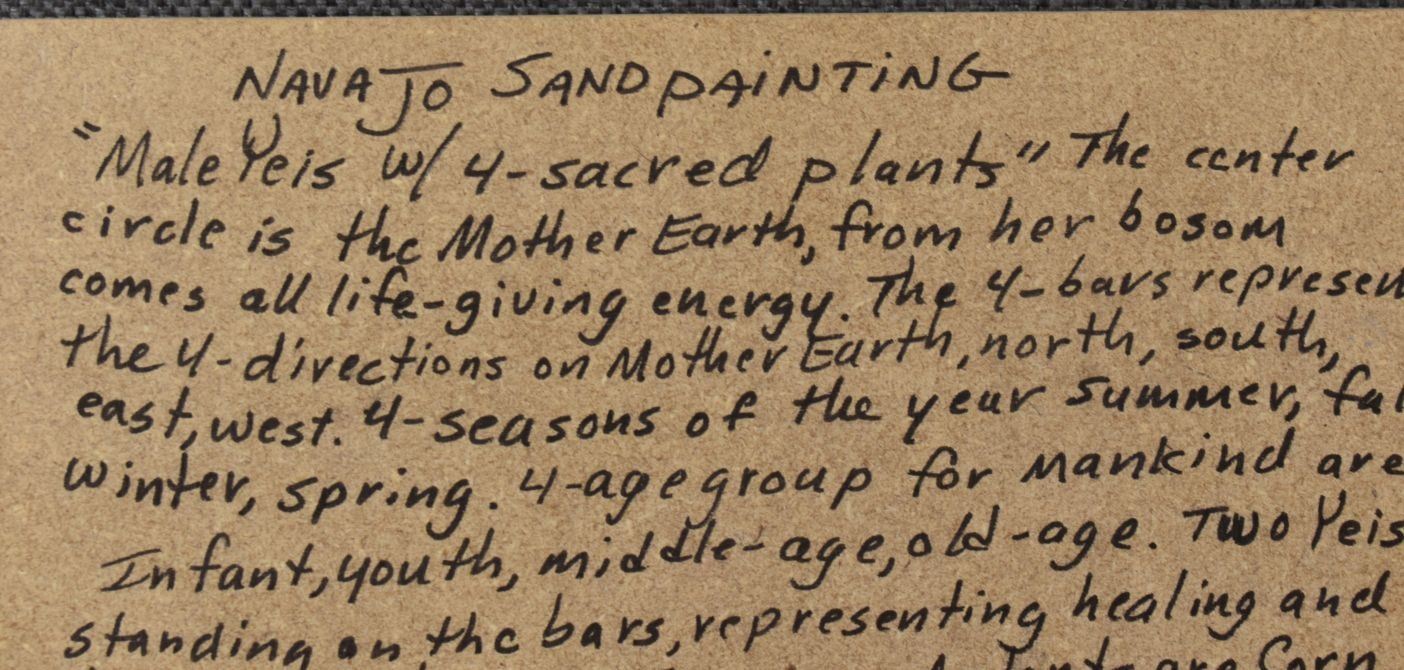 NAVAJO SANDPAiNTiNG
"Male Yeis w/ 4-sacred plants" The center
circle is the Mother Earth, from her bosom
comes all life-giving energy. The 4-bars represen
the 4-directions on Mother Earth, north, south,
east, west. 4-seasons of the year summer, fal
winter, spring. 4-age group for mankind are
Infant, youth, middle-age, old-age. Two Yeis
standing on the bars, representing healing and
are Corn